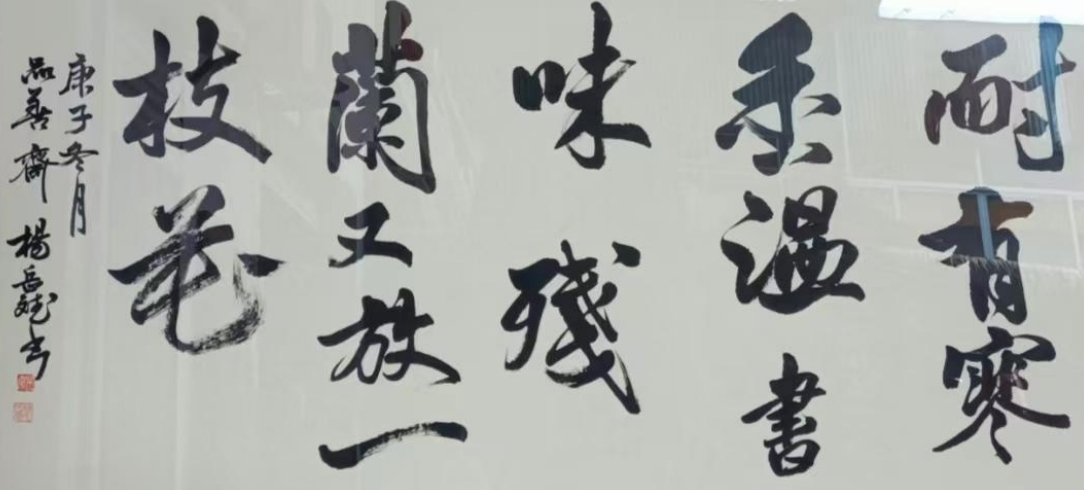 耐有寒
香温書
味殘
蘭又放一
枝花
庚子冬月
品善齋 楊岳书